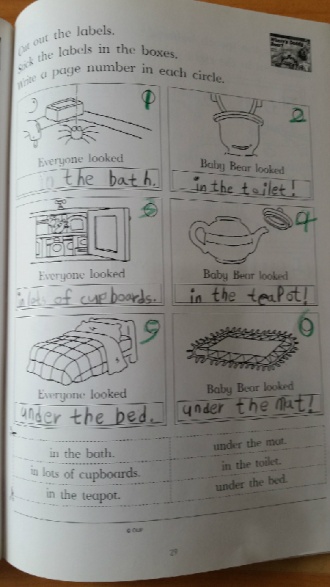 Cut out the labels.
Stick the labels in the boxes.
Write a page number in each circle.
1
2
Everyone looked
Baby Bear looked
in the bath.
in the toilet!
3
4
Everyone looked
Baby Bear looked
in lots of cupboards.
in the teapot!
5
6
Everyone looked
Baby Bear looked
under the bed.
under the mat!
in the bath.
under the mat.
in lots of cupboards.
in the toilet.
in the teapot.
under the bed.